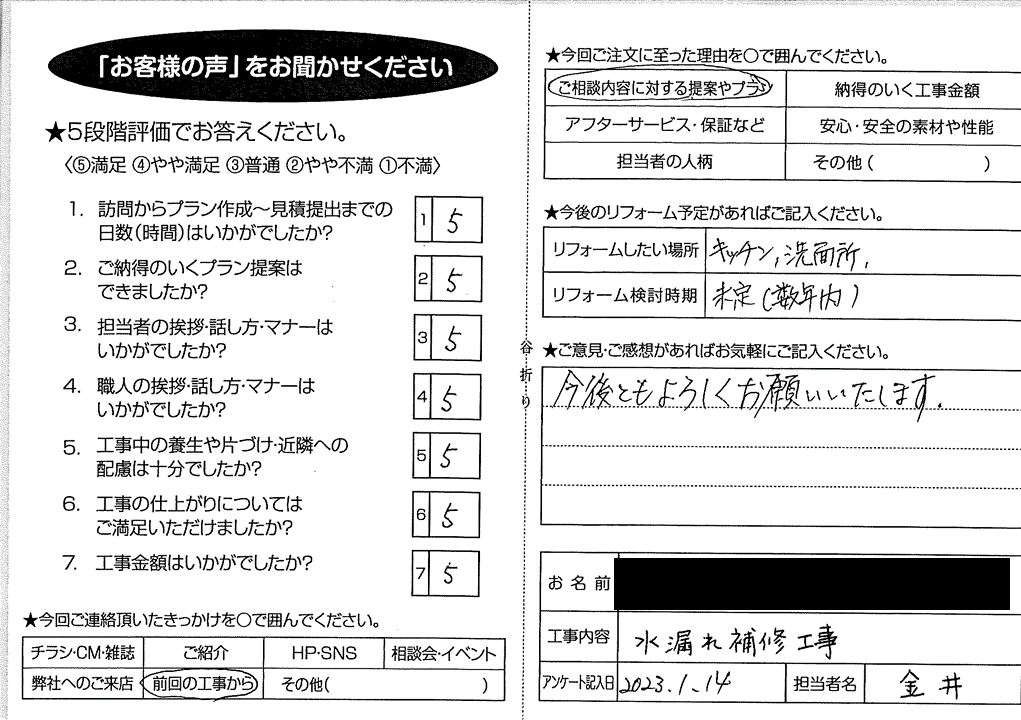 「お客様の声」をお聞かせください
★5段階評価でお答えください。
〈⑤満足 ④やや満足 ③普通 ②やや不満 ①不満〉
1. 訪問からプラン作成～見積提出までの
日数(時間)はいかがでしたか? 1 5
2. ご納得のいくプラン提案は
できましたか? 2 5
3. 担当者の挨拶・話し方・マナーは
いかがでしたか? 3 5
4. 職人の挨拶・話し方・マナーは
いかがでしたか? 4 5
5. 工事中の養生や片づけ・近隣への
配慮は十分でしたか? 5 5
6. 工事の仕上がりについては
ご満足いただけましたか? 6 5
7. 工事金額はいかがでしたか? 7 5
★今回ご連絡頂いたきっかけを○で囲んでください。
チラシ・CM・雑誌 ご紹介 HP・SNS 相談会・イベント
弊社へのご来店 前回の工事から その他( )
谷折り
★今回ご注文に至った理由を○で囲んでください。
ご相談内容に対する提案やプラン 納得のいく工事金額
アフターサービス・保証など 安心・安全の素材や性能
担当者の人柄 その他( )
★今後のリフォーム予定があればご記入ください。
リフォームしたい場所 キッチン,洗面所,
リフォーム検討時期 未定(数年内)
★ご意見・ご感想があればお気軽にご記入ください。
今後ともよろしくお願いいたします.
お名前
工事内容 水漏れ補修工事
アンケート記入日 2023.1.14 担当者名 金井